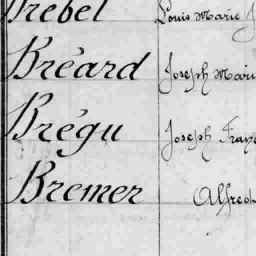 Trebel Louis Marie J
Bréard Joseph Marie
Brégu Joseph Franç
Bremer Alfred